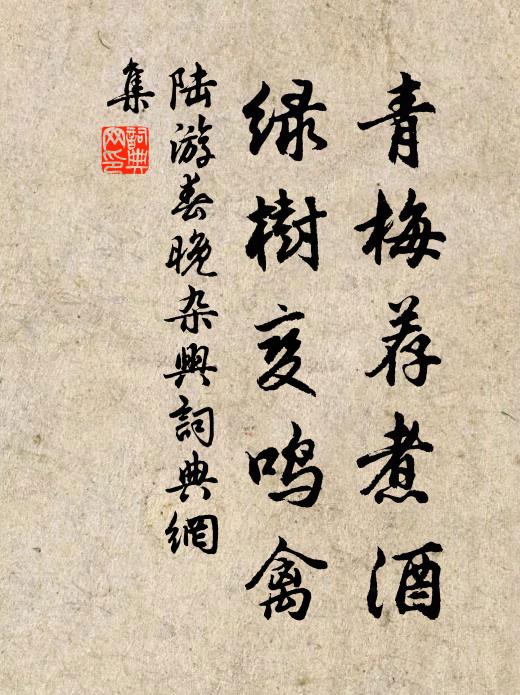 青梅荐煮酒
绿樹变鸣禽
陆游春晚杂興詞典網
集
詞典
网印